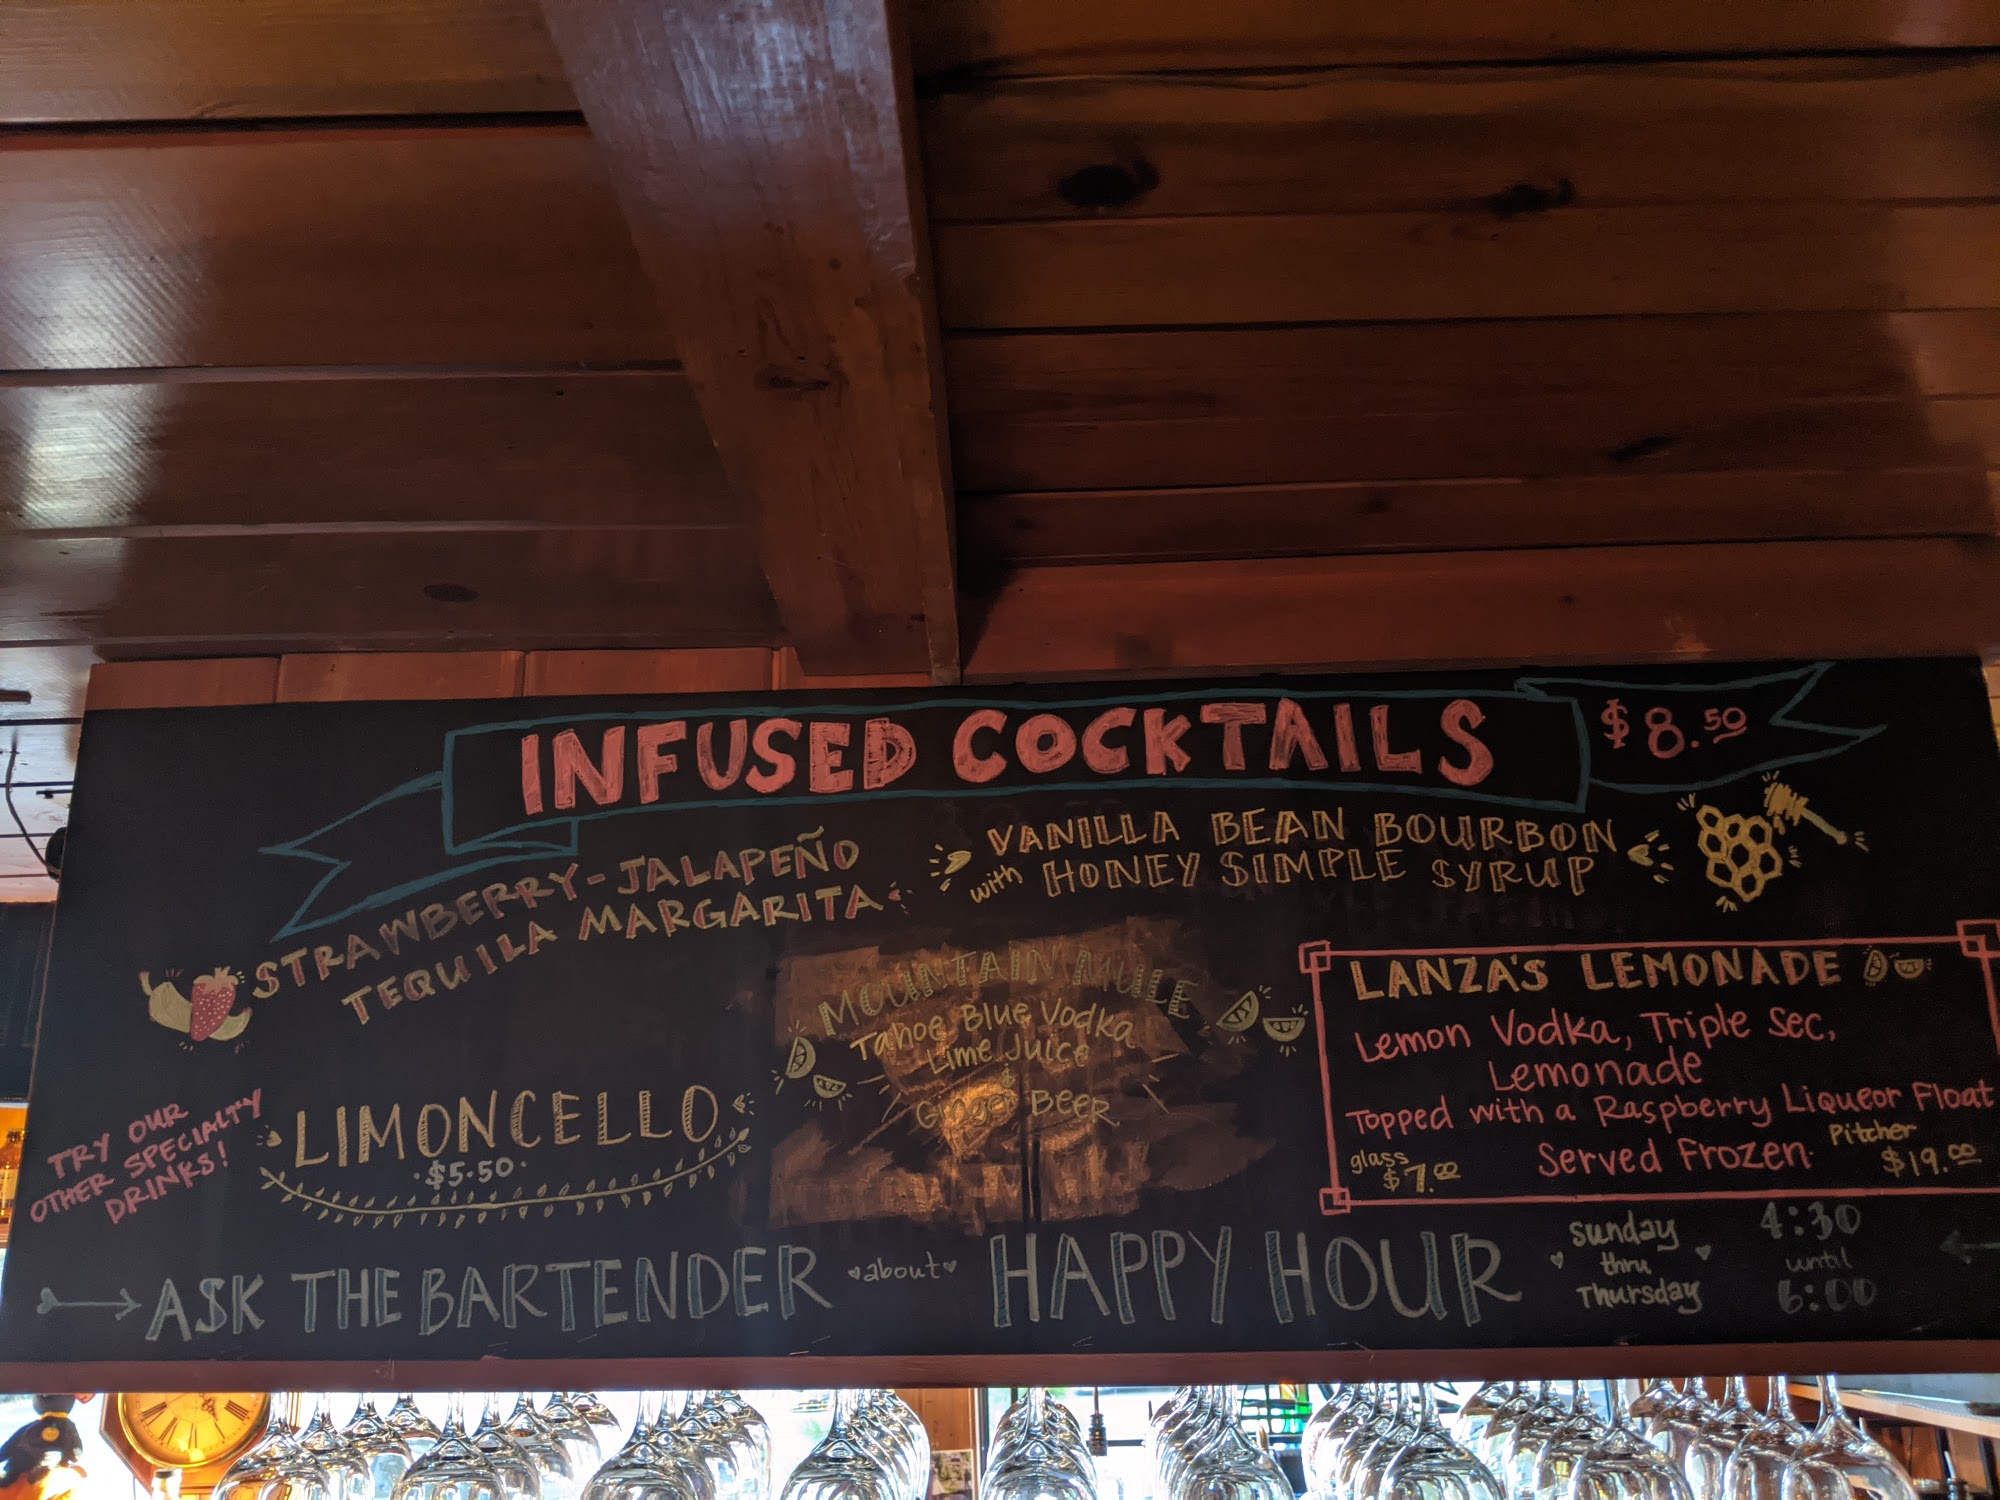 INFUSED COCKTAILS
$8.50
STRAWBERRY-JALAPEÑO
TEQUILA MARGARITA
VANILLA BEAN BOURBON
with HONEY SIMPLE SYRUP
MOUNTAIN MULE
Tahoe Blue Vodka
Lime Juice
&
Ginger BEER
LANZA'S LEMONADE
Lemon Vodka, Triple Sec,
Lemonade
Topped with a Raspberry Liqueor Float
Served Frozen.
glass
$7.00
Pitcher
$19.00
TRY OUR
OTHER SPECIALTY
DRINKS!
LIMONCELLO
$5.50
ASK THE BARTENDER about HAPPY HOUR
sunday
thru
Thursday
4:30
until
6:00